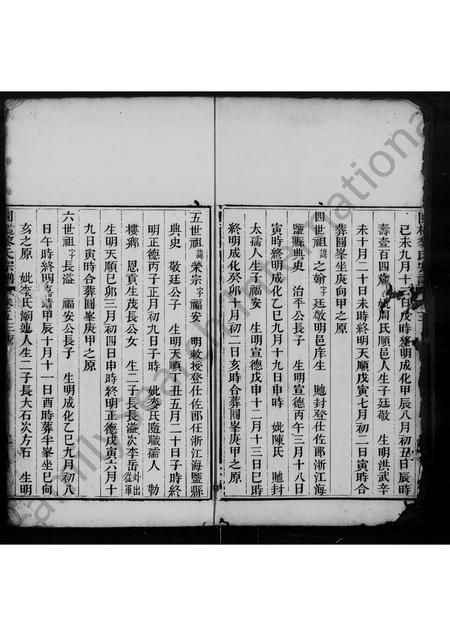 己未九月十戌時終明成化甲辰八月初五日辰時
壽壹百四歲妣周氏順邑人生子廷敬 生明洪武辛
未十月二十日未時終明天順戊寅七月初二日寅時合
葬圓峯坐庚向甲之原
四世祖諱之翰字廷敬明邑庠生 貤封登仕佐郎浙江海
鹽縣典史 治平公長子 生明宣德丙午三月十八日
寅時終明成化乙巳九月十九日申時 妣陳氏 貤封
太孺人生子福安 生明宣德戊申十二月十三日巳時
終明成化癸卯十月初二日亥時合葬圓峯庚甲之原
五世祖諱榮宗字福安 明敕授登仕佐郎任浙江海鹽縣
典史 敬廷公子 生明天順丁丑五月二十日子時終
明正德丙子正月初九日子時 妣麥氏隨職孺人 勒
樓鄉 恩貢生茂長公女 生二子長長溢次李岳外出從軍
生明天順己卯三月初四日申時終明正德戊寅六月十
九日寅時合葬圓峯庚甲之原
六世祖字長溢 福安公長子 生明成化乙巳九月初八
日午時終明嘉靖甲辰十月十一日酉時葬半峯坐巳向
亥之原 妣李氏潮蓮人生二子長大石次方石 生明
FamilySearch International